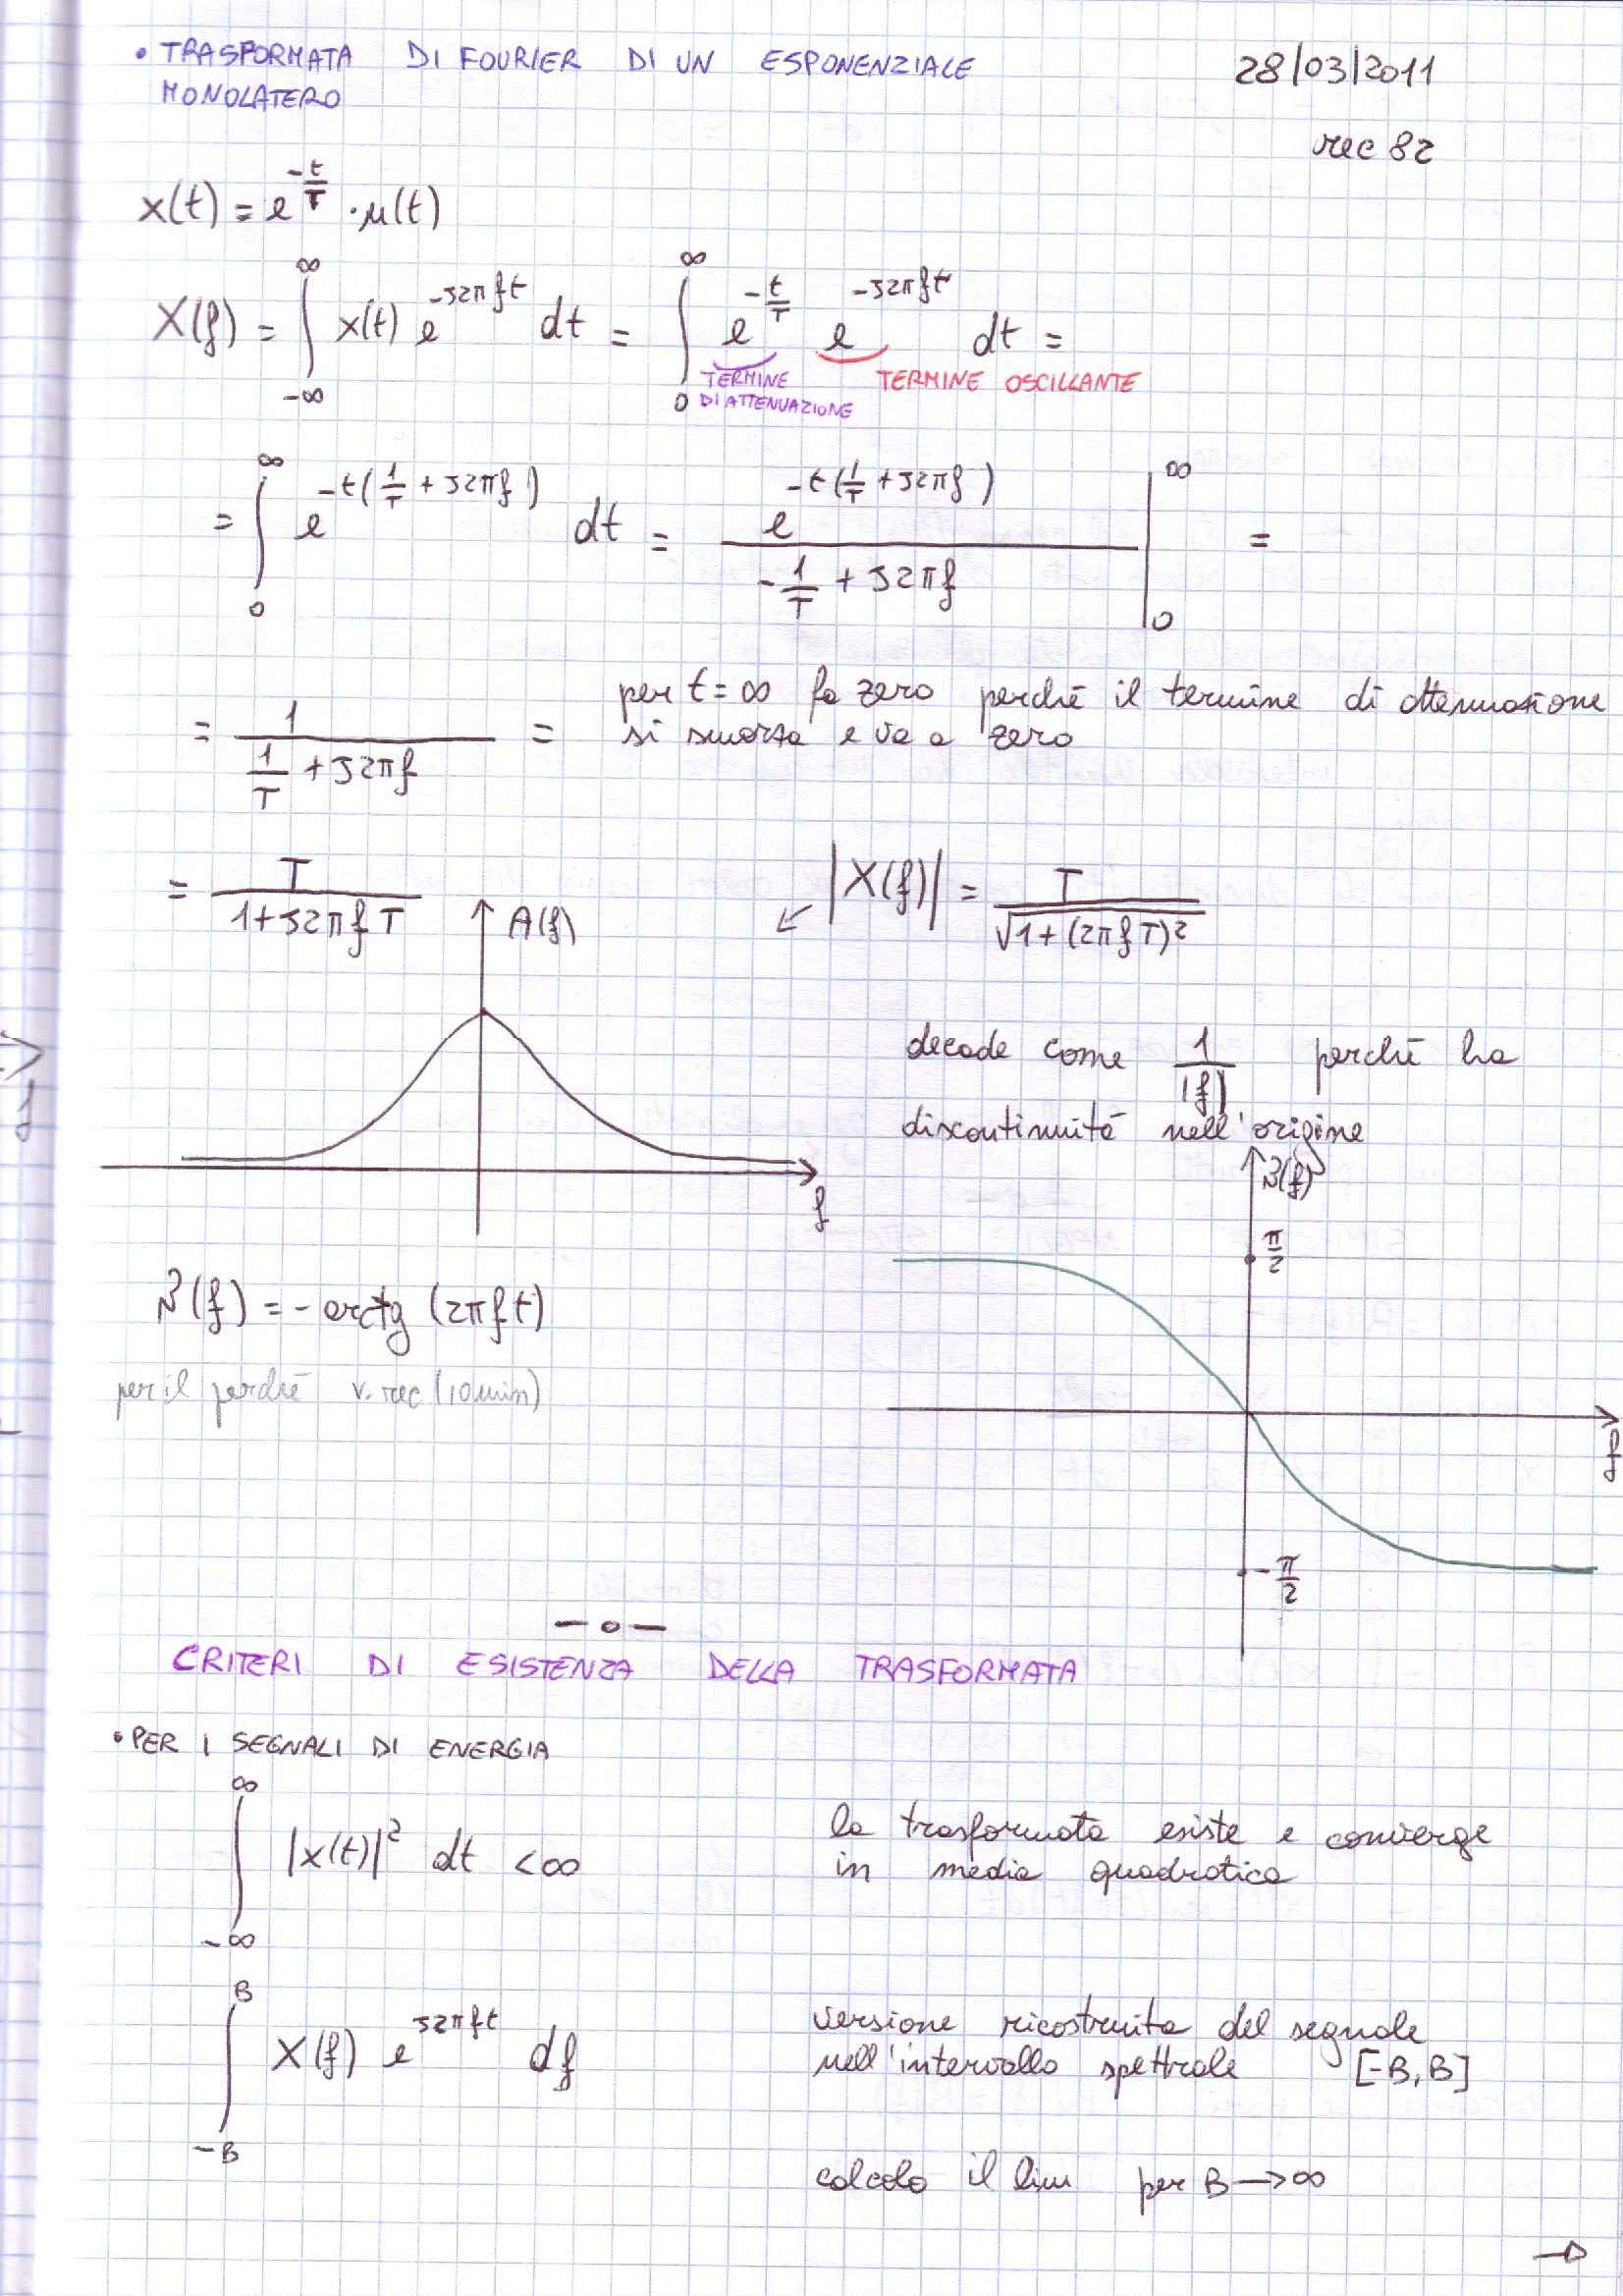 • TRASFORMATA DI FOURIER DI UN ESPONENZIALE
MONOLATERO
28/03/2011
rec 82
x(t) = e^{-t/T} · u(t)
X(f) = ∫_{-∞}^{∞} x(t) e^{-j2πft} dt = ∫_0^∞ e^{-t/T} e^{-j2πft} dt =
TERMINE DI ATTENUAZIONE
TERMINE OSCILLANTE
= ∫_0^∞ e^{-t(1/T + j2πf)} dt = e^{-t(1/T + j2πf)} / (-1/T + j2πf) |_0^∞ =
= 1 / (1/T + j2πf) =
per t = ∞ fa zero perché il termine di attenuazione
si smorza e va a zero
= T / (1 + j2πfT)
↙ |X(f)| = T / √(1 + (2πfT)²)
A(f)
f
decade come 1/|f| perché ha
discontinuità nell'origine
ϑ(f)
π/2
f
-π/2
ϑ(f) = - arctg (2πft)
per il perché v. rec (10min)
— o —
CRITERI DI ESISTENZA DELLA TRASFORMATA
• PER I SEGNALI DI ENERGIA
∫_{-∞}^{∞} |x(t)|² dt < ∞
la trasformata esiste e converge
in media quadratica
∫_{-B}^{B} X(f) e^{j2πft} df
versione ricostruita del segnale
nell'intervallo spettrale [-B, B]
calcolo il lim per B → ∞